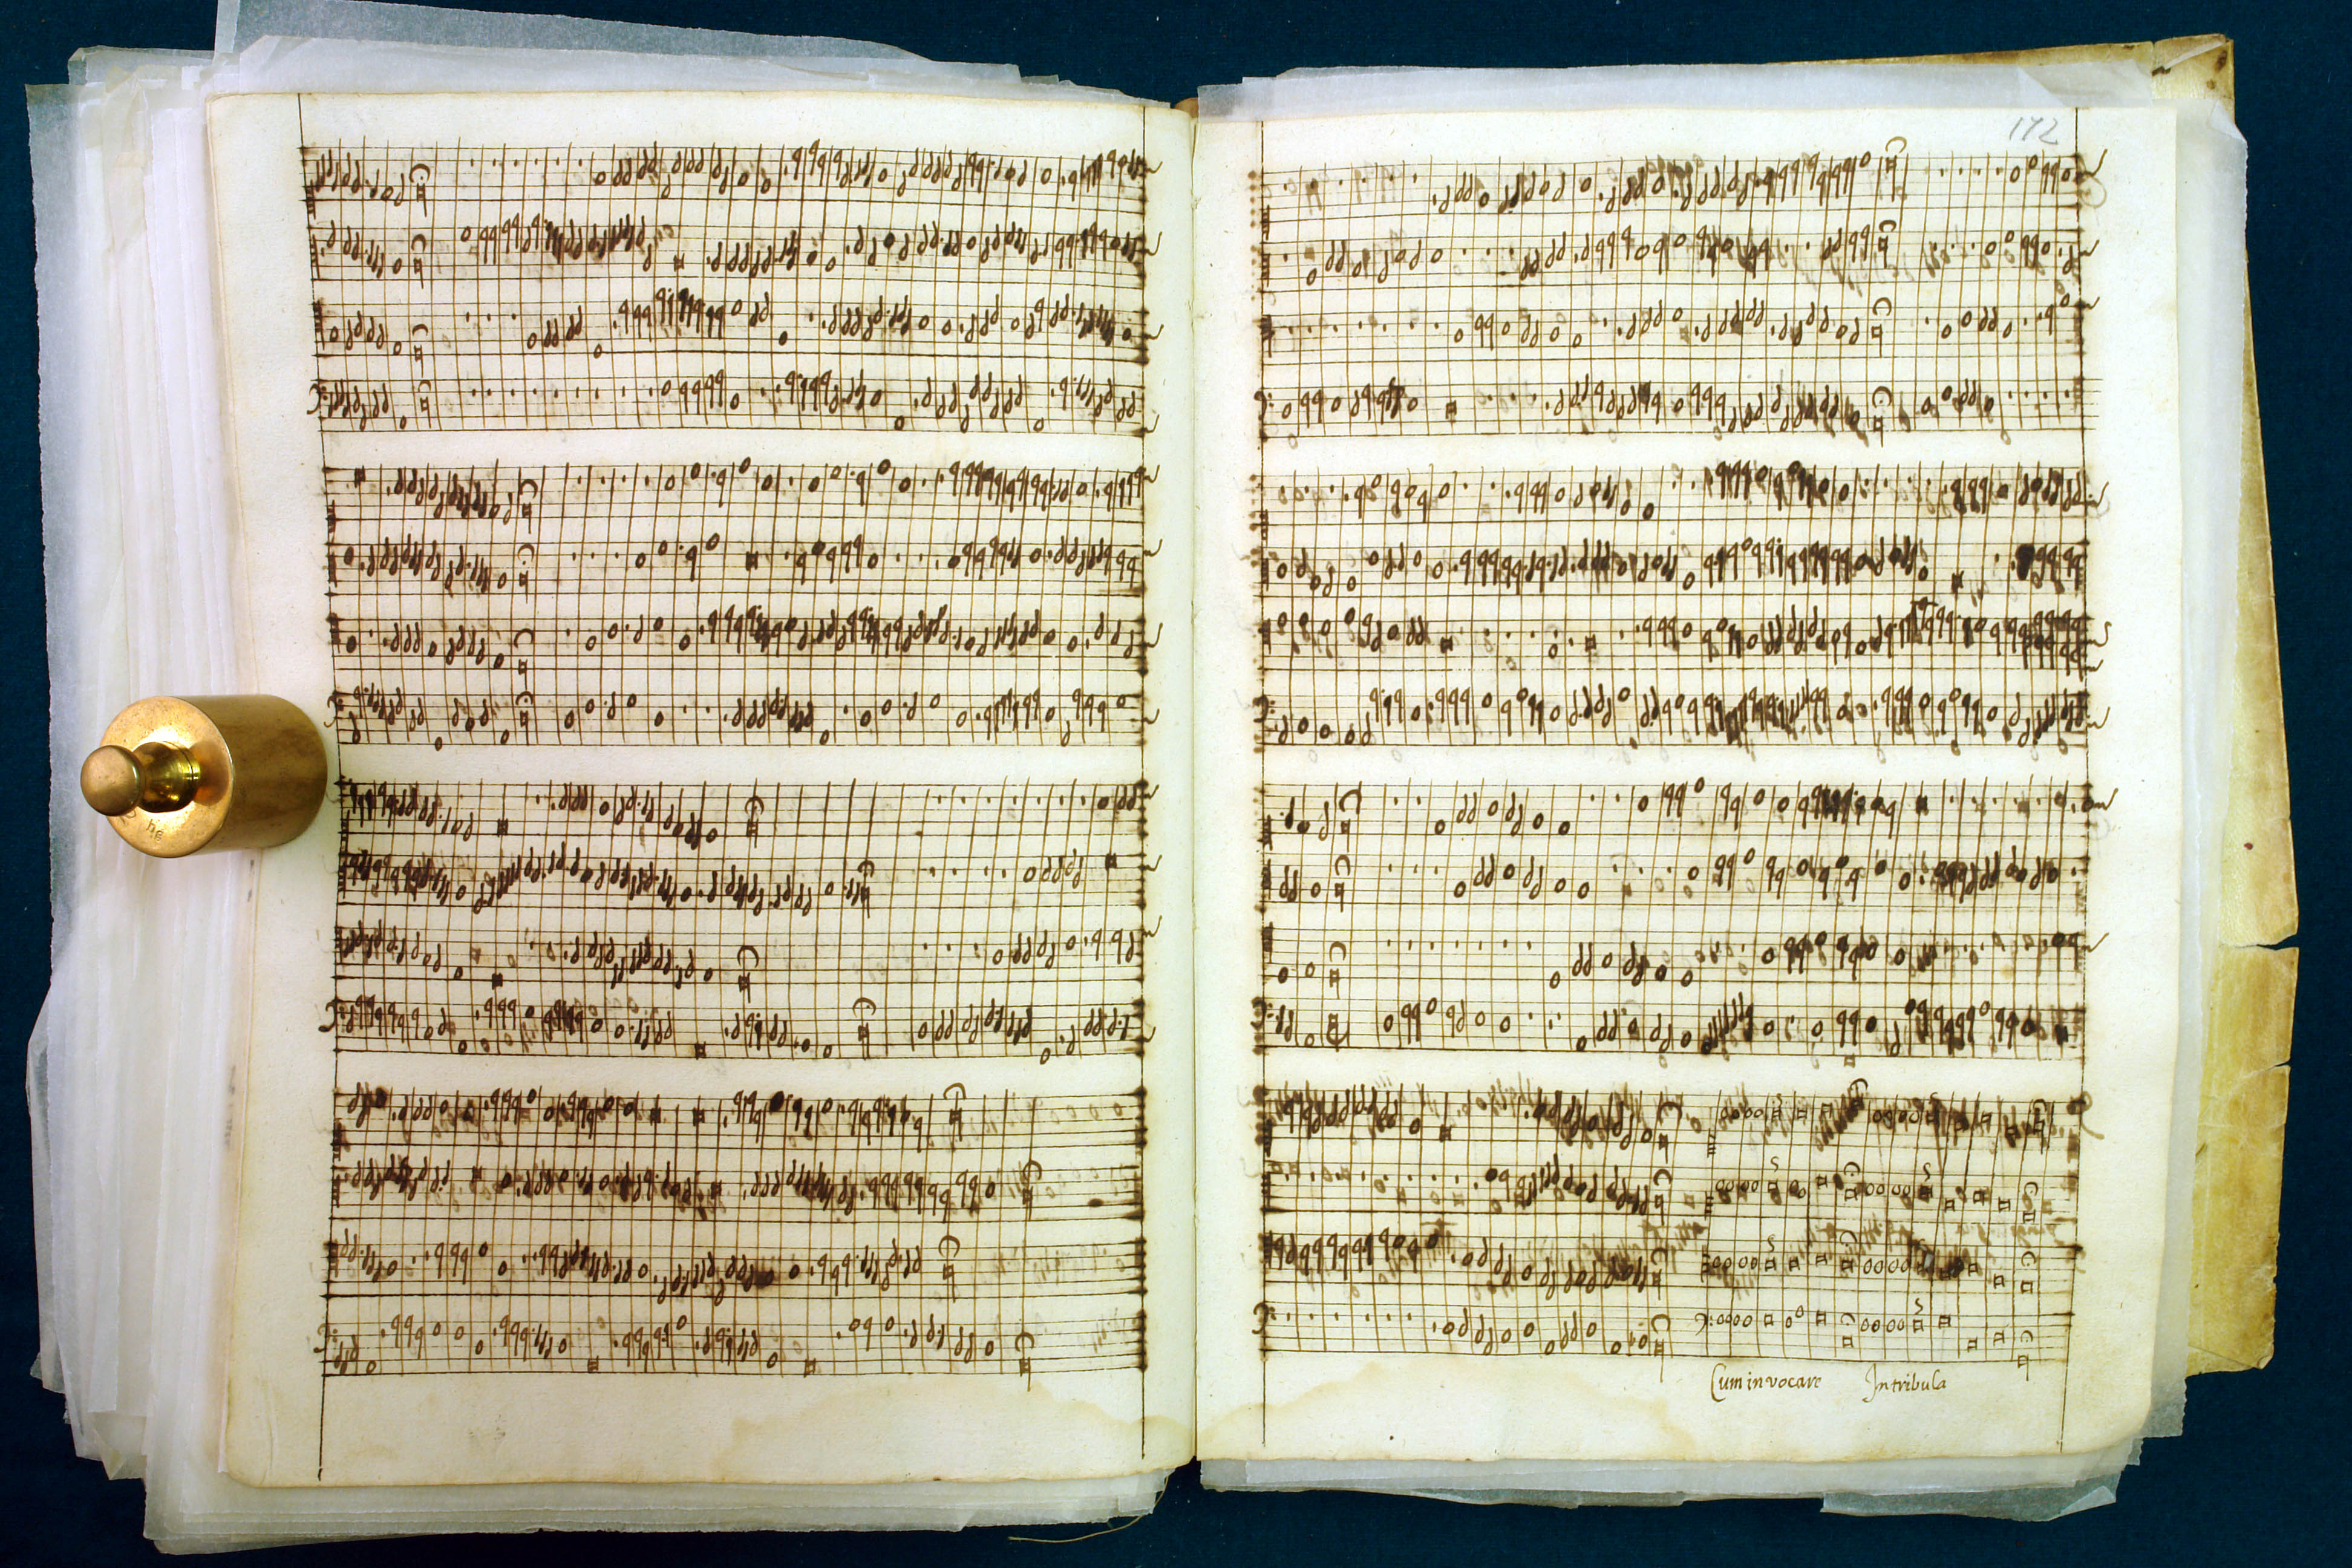 172
Cum invocare Intribula